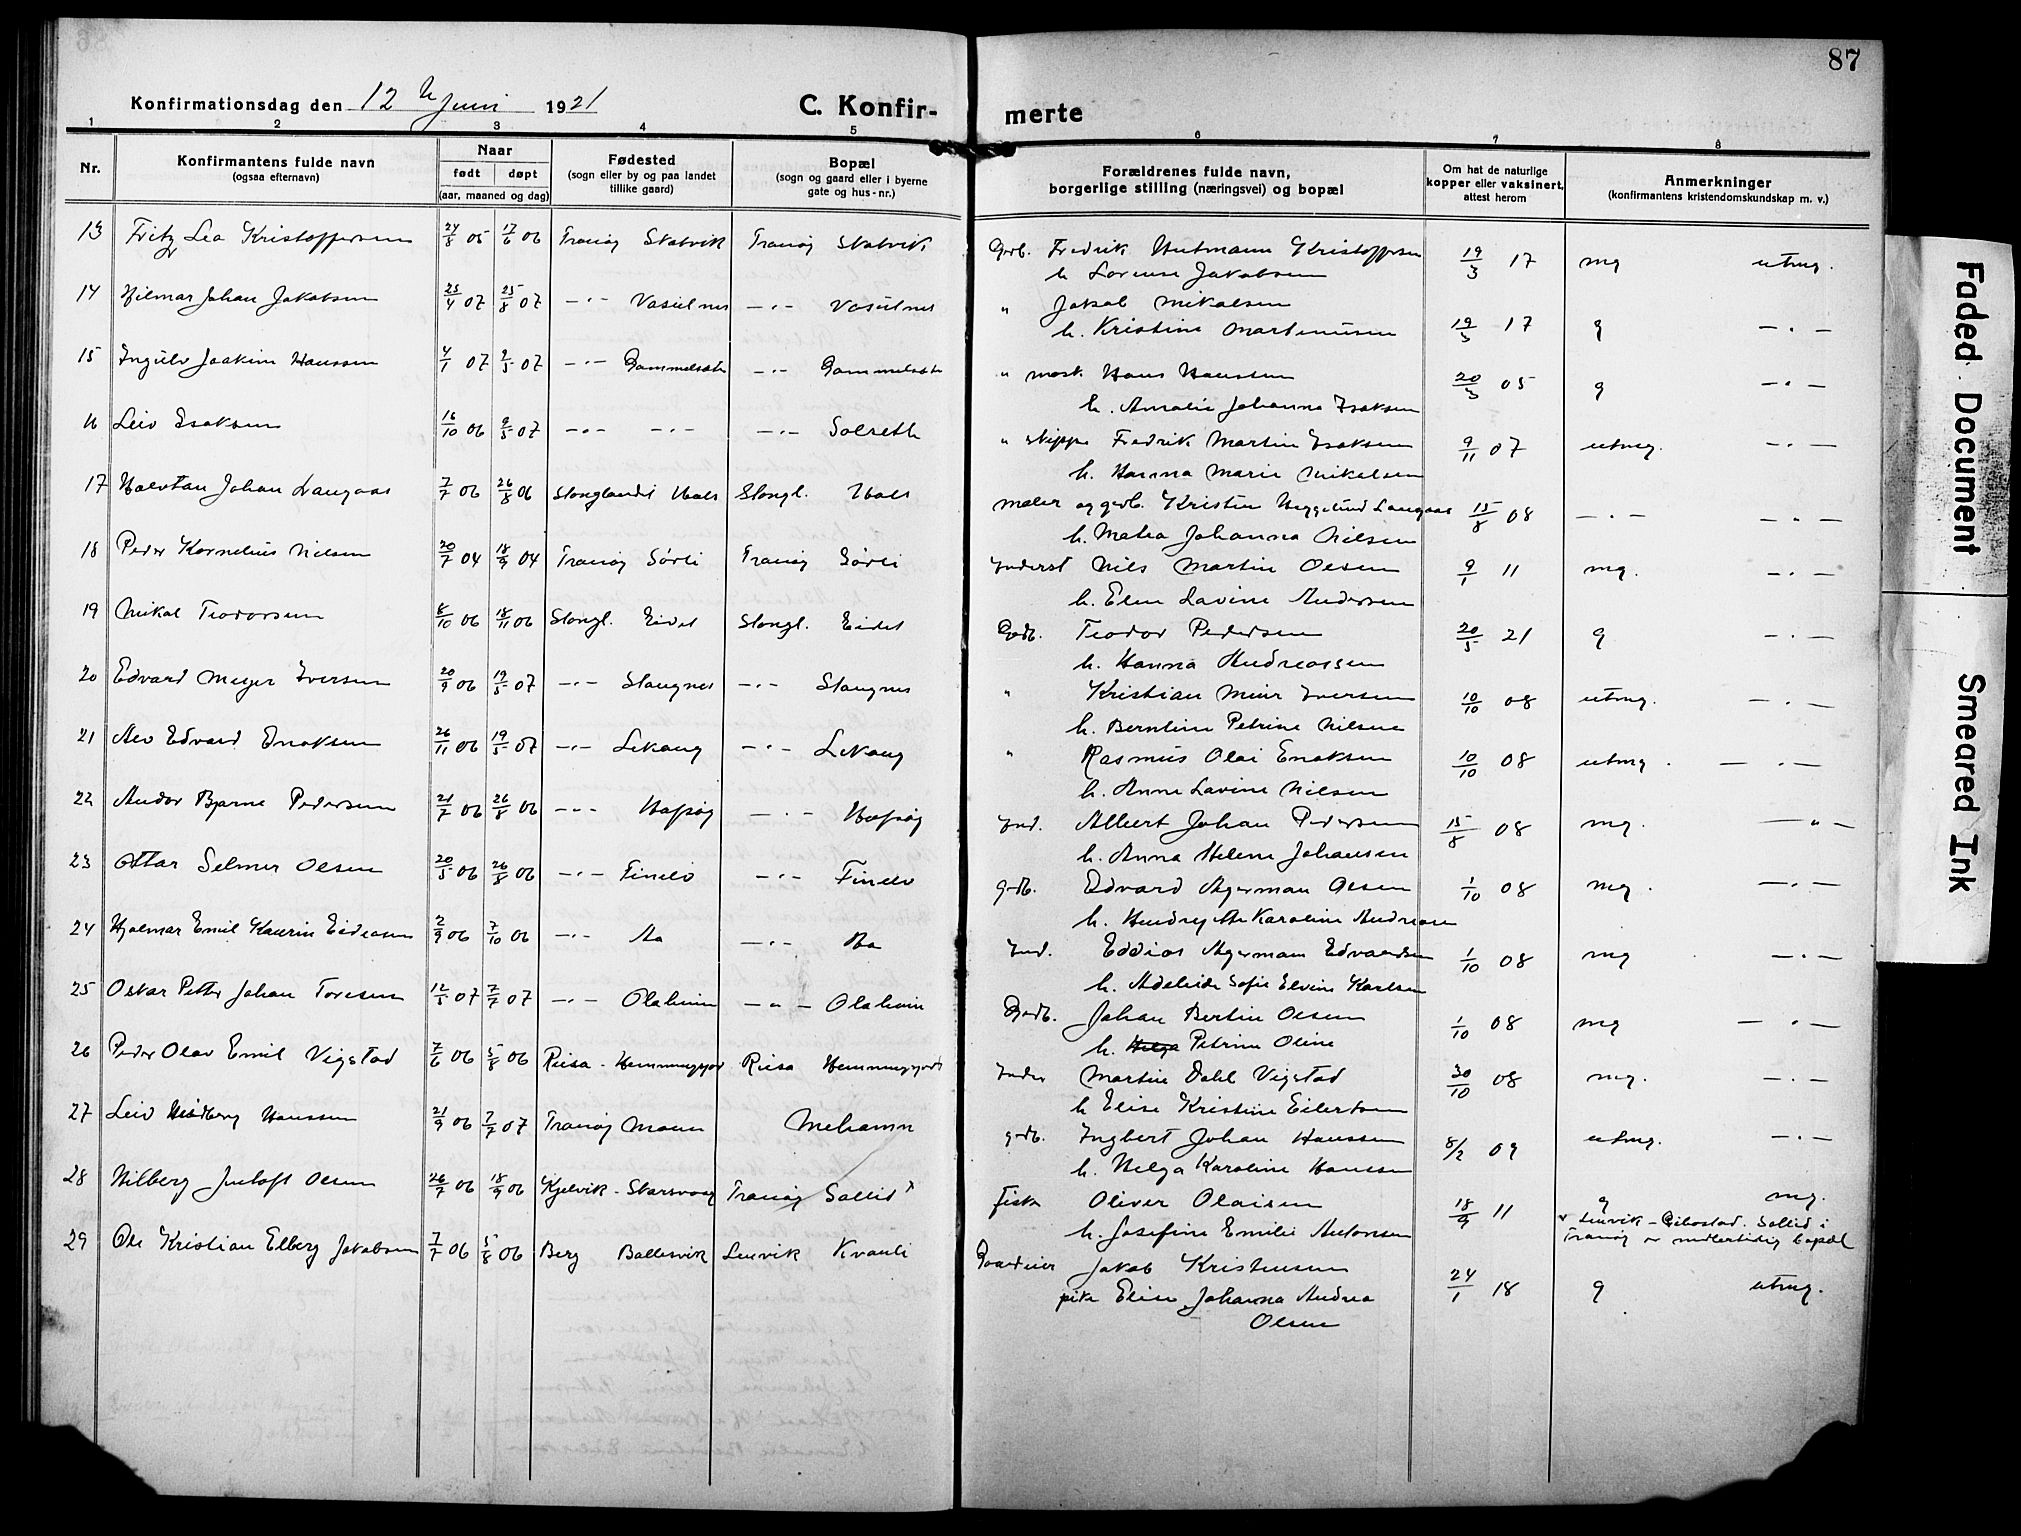 87
Konfirmationsdag den 12 Juni 1921
C. Konfirmerte
1 2 3 4 5 6 7 8
Nr. Konfirmantens fulde navn (ogsaa efternavn) Naar født døpt (aar, maaned og dag) Fødested (sogn eller by og paa landet tillike gaard) Bopæl (sogn og gaard eller i byerne gate og hus-nr.) Forældrenes fulde navn, borgerlige stilling (næringsvei) og bopæl Om hat de naturlige kopper eller vaksinert, attest herom Anmerkninger (konfirmantens kristendomskundskap m. v.)
13 Fritz Leo Kristoffersen 24/8 05 17/6 06 Tranøy Skatvik Tranøy Skatvik Gdb. Fredrik Hutmann Kristoffersen 19/3 17 mg utmg.
h. Lorense Jakobsen
14 Hilmar Johan Jakobsen 25/4 07 25/8 07 -"- Vasselnes -"- Vasselnes " Jakob Mikalsen
h. Kristine Martinussen 19/3 17 g -"-
15 Ingulv Joakim Hanssen 4/1 07 9/5 07 -"- Gammelsæter -"- Gammelsæter " mask. Hans Hanssen 20/3 05 g -"-
h. Amalie Johanna Isaksen
16 Leiv Isaksen 16/10 06 9/5 07 -"- -"- -"- Solreth " skipper Fredrik Martin Isaksen 9/11 07 utmg. -"-
h. Hanna Marie Mikalsen
17 Halvtan Johan Langaas 7/7 06 26/8 06 Stonglandet Hals Stongl. Hals Maler og gdb. Kristen Heggelund Langaas 15/8 08 -"- -"-
h. Matea Johanna Nilsen
18 Peder Kornelius Nilsen 20/7 04 18/9 04 Tranøy Sørli Tranøy Sørli Inderst Nils Martin Olsen 9/1 11 mg. -"-
h. Elen Lavine Andersen
19 Mikal Teodorsen 8/10 06 18/11 06 Stongl. Eidet Stongl. Eidet Gdb. Teodor Pedersen 20/5 21 g -"-
h. Hanna Andreassen
20 Edvard Meyer Iversen 20/9 06 19/5 07 -"- Stangnes -"- Stangnes " Kristian Meier Iversen 10/10 08 utmg. -"-
h. Berntine Petrine Nilsen
21 Alv Edvard Enoksen 26/11 06 19/5 07 -"- Lekang -"- Lekang " Rasmus Olai Enoksen 10/10 08 utmg. -"-
h. Anne Lavine Nilsen
22 Andor Bjarne Pedersen 21/7 06 26/8 06 -"- Hofsøy -"- Hofsøy Ind. Albert Johan Pedersen 15/8 08 mg. -"-
h. Anna Helene Johansen
23 Ottar Selmer Olsen 20/5 06 26/8 06 -"- Finelv -"- Finelv gdb. Edvard Agerman Olsen 1/10 08 mg. -"-
24 Hjalmar Emil Kaurin Eideassen 2/9 06 7/10 06 -"- Aa -"- Aa Ind. Eddias Agerman Edvardsen 1/10 08 mg -"-
h. Adeleide Sofie Elvine Karlsen
25 Oskar Petter Johan Toresen 12/5 07 7/7 07 -"- Olaheim -"- Olaheim Gdb. Johan Bertin Olsen 1/10 08 mg -"-
h. Petrine Oline
26 Peder Olav Emil Vigstad 7/6 06 5/8 06 Reisa - Hemmingsjord Reisa Hemmingsjord Inder Martin Dahl Vigstad 30/10 08 mg. -"-
h Elise Kristine Eilertsen
27 Leiv Hindberg Hanssen 21/9 06 7/7 07 Tranøy Moen Mehamn gdb. Ingbert Johan Hanssen 8/2 09 utmg. -"-
h. Helga Karoline Hanssen
28 Hilberg Justoft Olsen 26/7 06 18/9 06 Kjelvik - Skarsvaag Tranøy Sollid x Fisk Oliver Olaisen 18/9 11 g mg.
h. Josefine Emilie Antonsen x Lenvik - Gibostad. Sollid i Tranøy er midlertidig bopæl
29 Ole Kristian Elberg Jakobsen 7/7 06 5/8 06 Berg Ballesvik Lenvik Kvanli Gaardeier Jakob Kristensen 24/1 18 g utmg.
pike Elise Johanna Andrea
Olsen
Faded Document
Smeared Ink